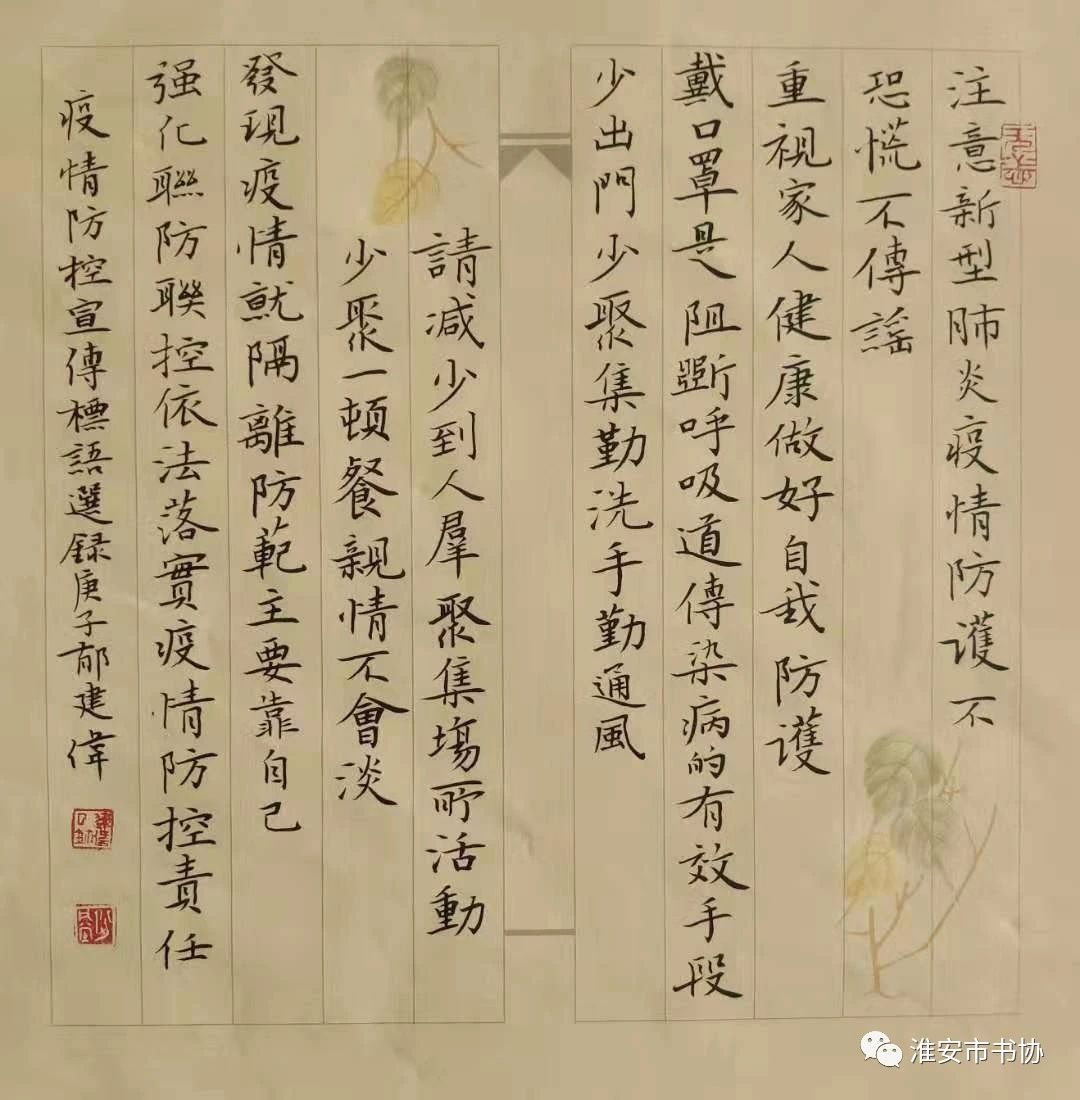 注意新型肺炎疫情防護不
恐慌不傳謠
重視家人健康做好自我防護
戴口罩是阻斷呼吸道傳染病的有效手段
少出門少聚集勤洗手勤通風
請减少到人羣聚集場所活動
少聚一頓餐親情不會淡
發現疫情就隔離防範主要靠自己
强化聯防聯控依法落實疫情防控責任
疫情防控宣傳標語選録庚子郁建偉
淮安市书协